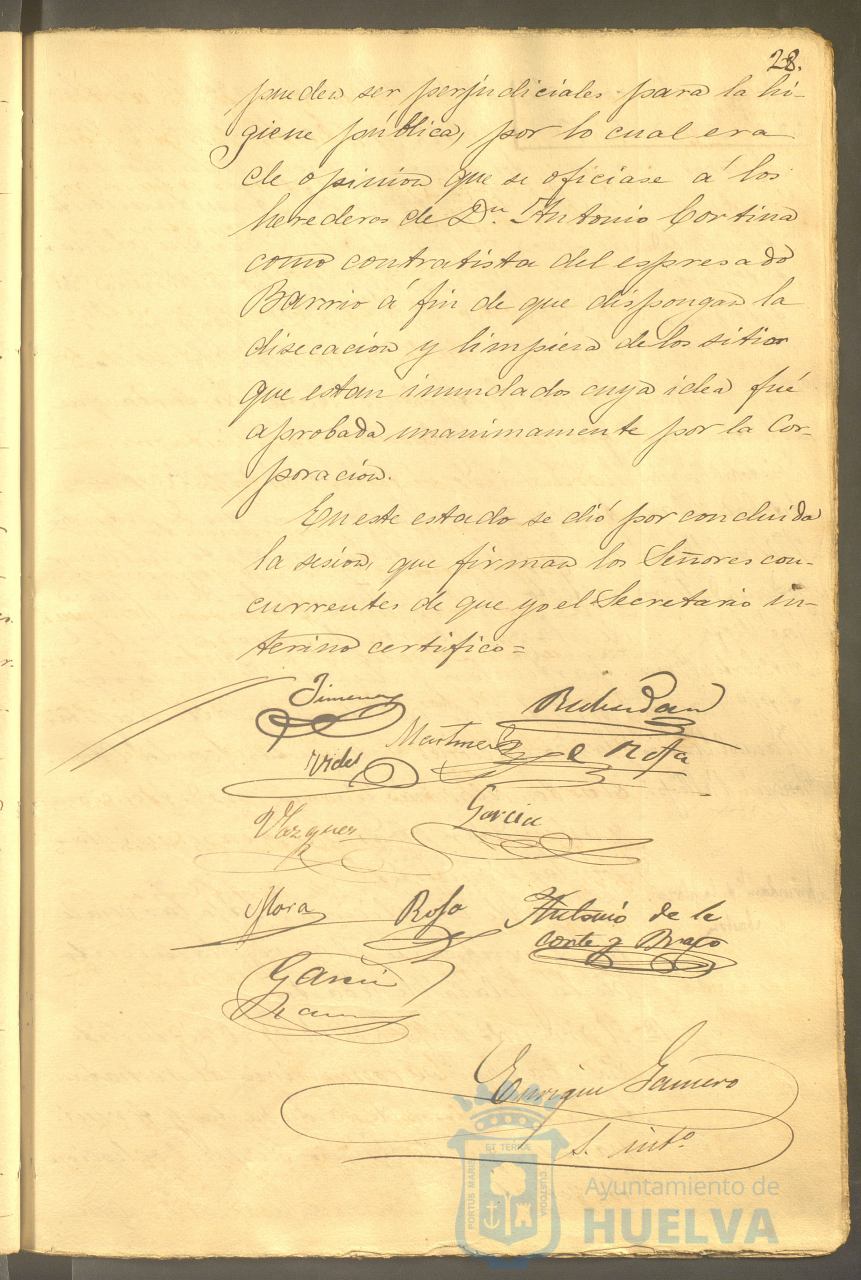 28.
pueden ser perjudiciales para la hi-
giene pública, por lo cual era
de opinion que se oficiase á los
herederos de Dn. Antonio Cortina
como contratista del espresado
Barrio á fin de que dispongan la
disecacion y limpiera de los sitios
que estan inundados cuya idea fué
aprobada unanimamente por la Cor-
poracion.
En este estado se dió por concluida
la sesion, que firman los Señores con-
currentes de que yo el Secretario in-
terino certifico=
Jimenez
Vides Martinez
Vazquez Garcia
Mora Rofa Antonio de la
Corte y Bravo
Garcia
Enrique Gamero
S. into.
ET TERRÆ
PORTUS MARIS
CUSTODIA
Ayuntamiento de
HUELVA